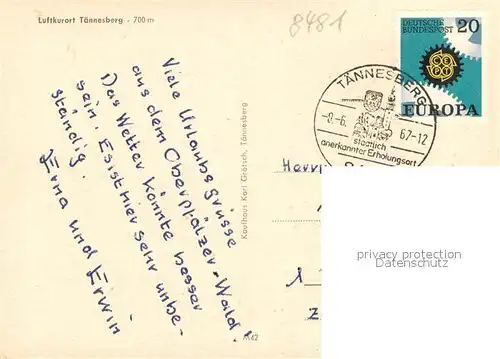 Luftkurort Tännesberg - 700 m
8481
DEUTSCHE
BUNDESPOST
20
CEPT
EUROPA
TÄNNESBERG
-8.-6. 67-12
staatlich
anerkannter Erholungsort
Viele Urlaubsgrüsse
aus dem Oberpfälzer-Wald!
Das Wetter könnte besser
sein. Es ist hier sehr unbe-
ständig.
Erna und Erwin
Kaufhaus Karl Grötsch, Tännesberg
Herrn
1
Z
privacy protection
Datenschutz